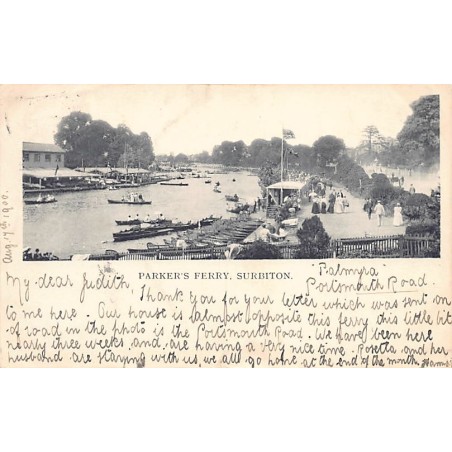 Aug 17th 1900.
PARKER'S FERRY, SURBITON.
Palmyra
Portsmouth Road.
My dear Judith,
Thank You for your letter which was sent on
to me here. Our house is almost opposite this ferry this little bit
of road in the photo is the Portsmouth Road. We have been here
nearly three weeks, and are having a very nice time. Rosetta and her
husband are staying with us, we all go home at the end of the month.